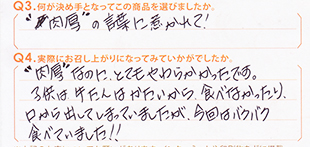 Q3.何が決め手となってこの商品を選びましたか。
"肉厚"の言葉に惹かれて!
Q4.実際にお召し上がりになってみていかがでしたか。
"肉厚"なのに、とてもやわらかかったです。
子供は牛たんはかたいから食べなかったり、
口から出してしまっていましたが、今回はバクバク
食べていました!!